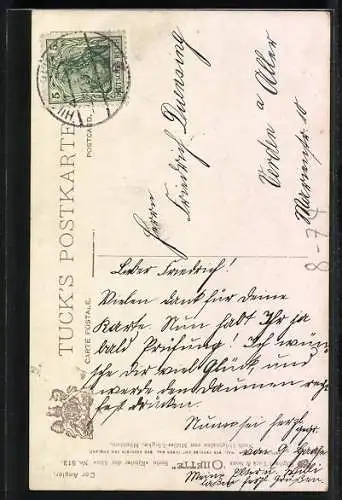 TUCK'S POSTKARTE
CARTE POSTALE.
POSTCARD.
5
Herrn
Friedrich Duensing
Verden a Aller
Marienstr 10
8-74
Lieber Friedrich!
Vielen dank für deine
Karte Nun habt Ihr ja
bald Prüfung! Ich wün
sche dir viel Glück und
werde den Daumen rech
fest drücken.
Nun sei herzl
von
Meine Eltern
lassen herzl Grüßen
"OILETTE"
Der Angler.
No. 813.